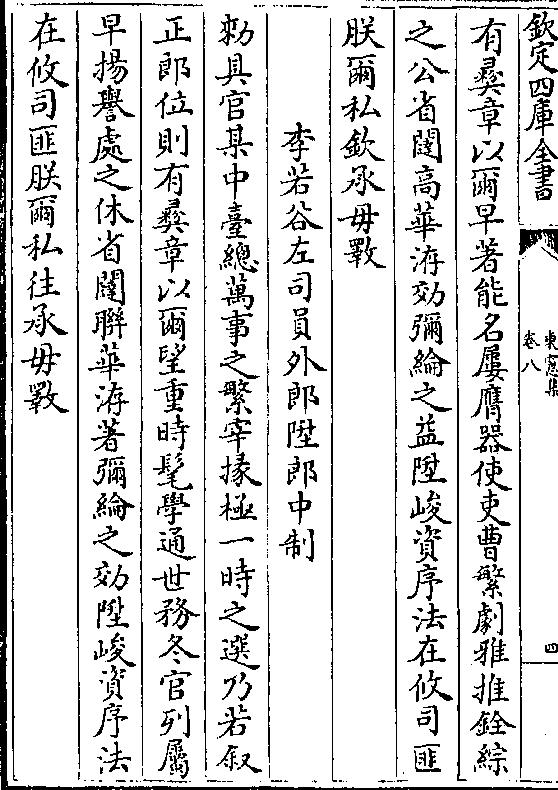 欽定四庫全書
東窻集
卷八
四
有彛章以爾早著能名屢膺器使吏曹繁劇雅推銓綜
之公省闥高華洊効彌綸之益陞峻資序法在攸司匪
朕爾私欽承毋斁
李若谷左司員外郎陞郎中制
勑具官某中臺總萬事之繁宰掾極一時之選乃若叙
正郎位則有彛章以爾望重時髦學通世務冬官列屬
早揚譽處之休省闥聯華洊著彌綸之効陞峻資序法
在攸司匪朕爾私往承毋斁